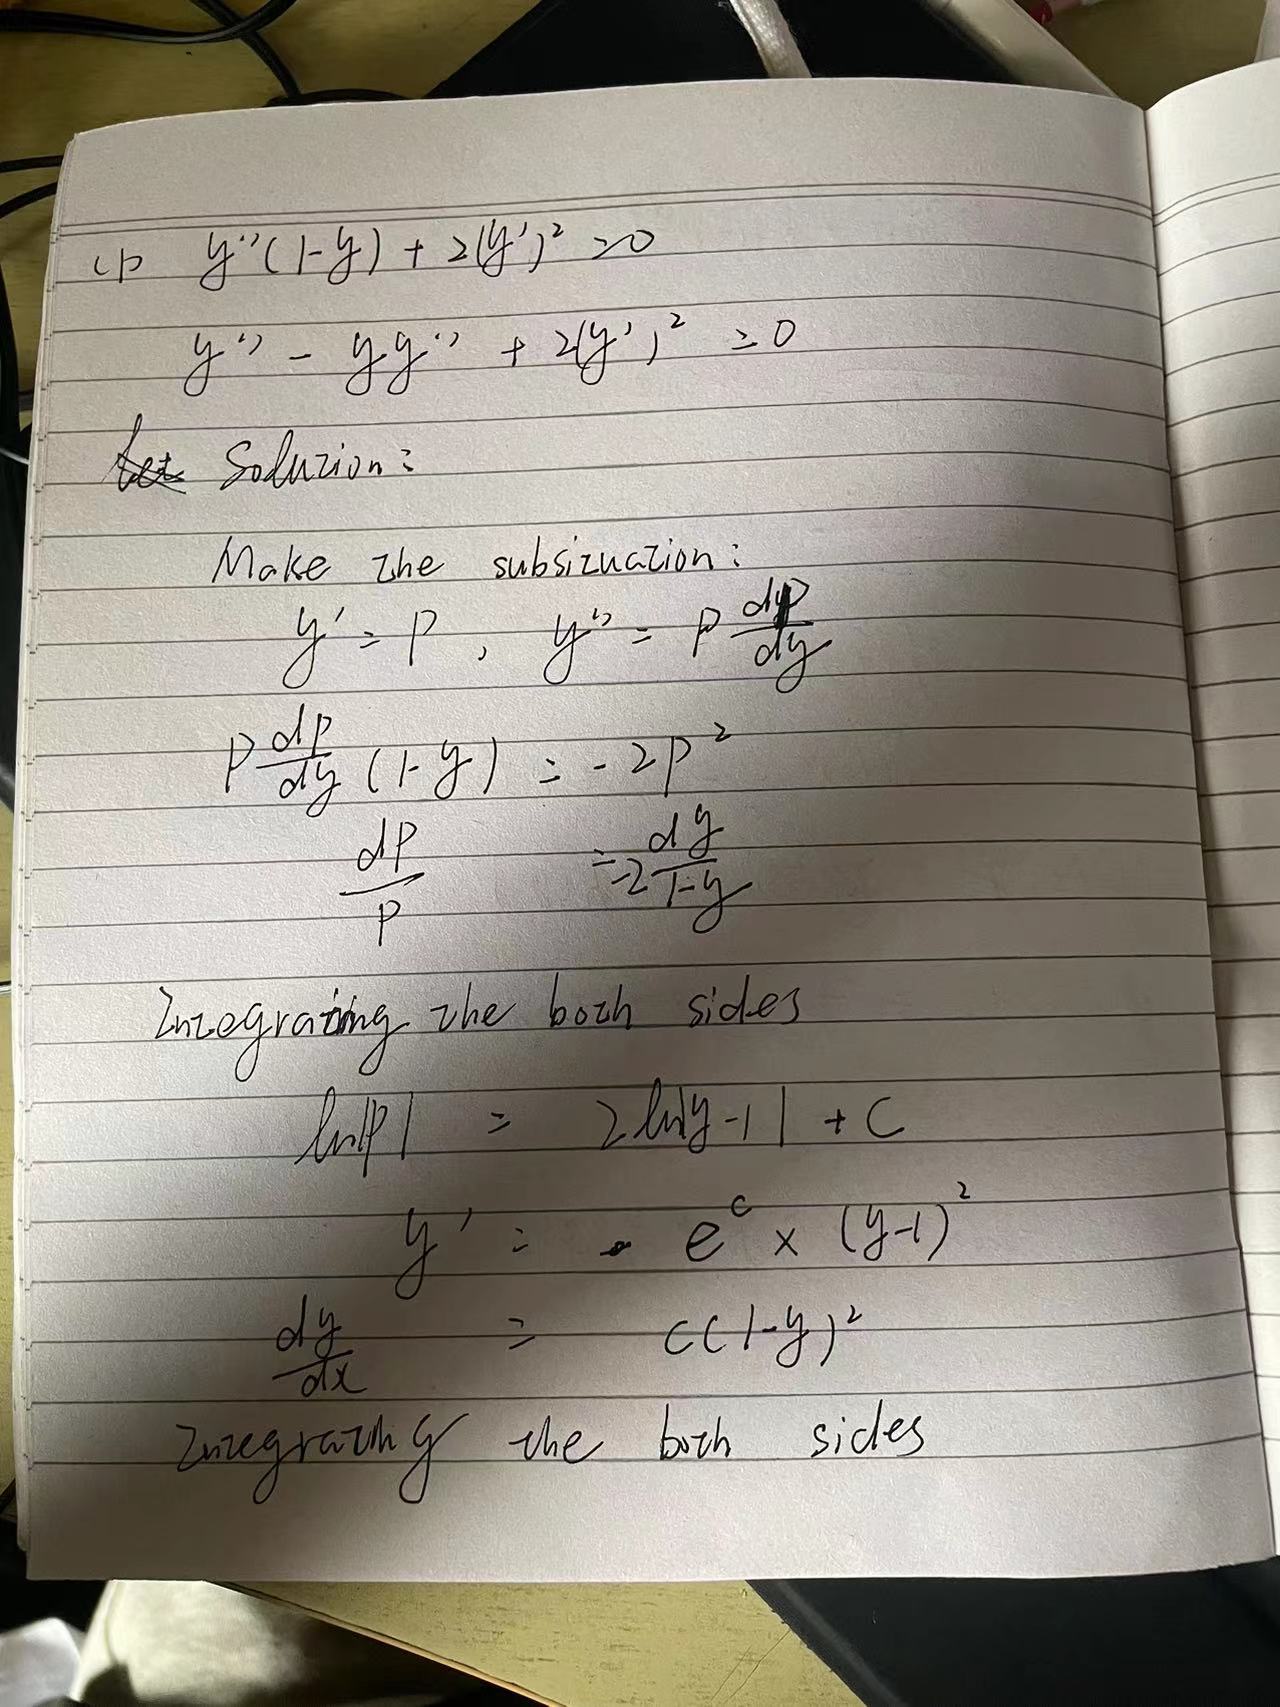 (1) y''(1-y) + 2(y')² = 0
y'' - yy'' + 2(y')² = 0
Soluzion:
Make the subsizuazion:
y' = P, y'' = P dp/dy
P dp/dy (1-y) = -2P²
dP/P = -2 dy/1-y
Integrating the both sides
ln|P| = 2ln|y-1| + C
y' = e^c × (y-1)²
dy/dx = C(1-y)²
Integrating the both sides